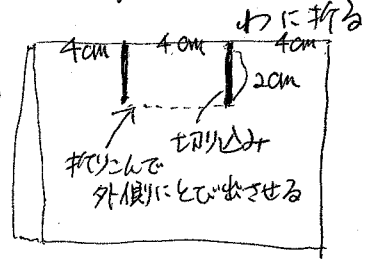 わに折る
4cm 4cm 4cm
2cm
切り込み
折りこんで
外側にとび出させる